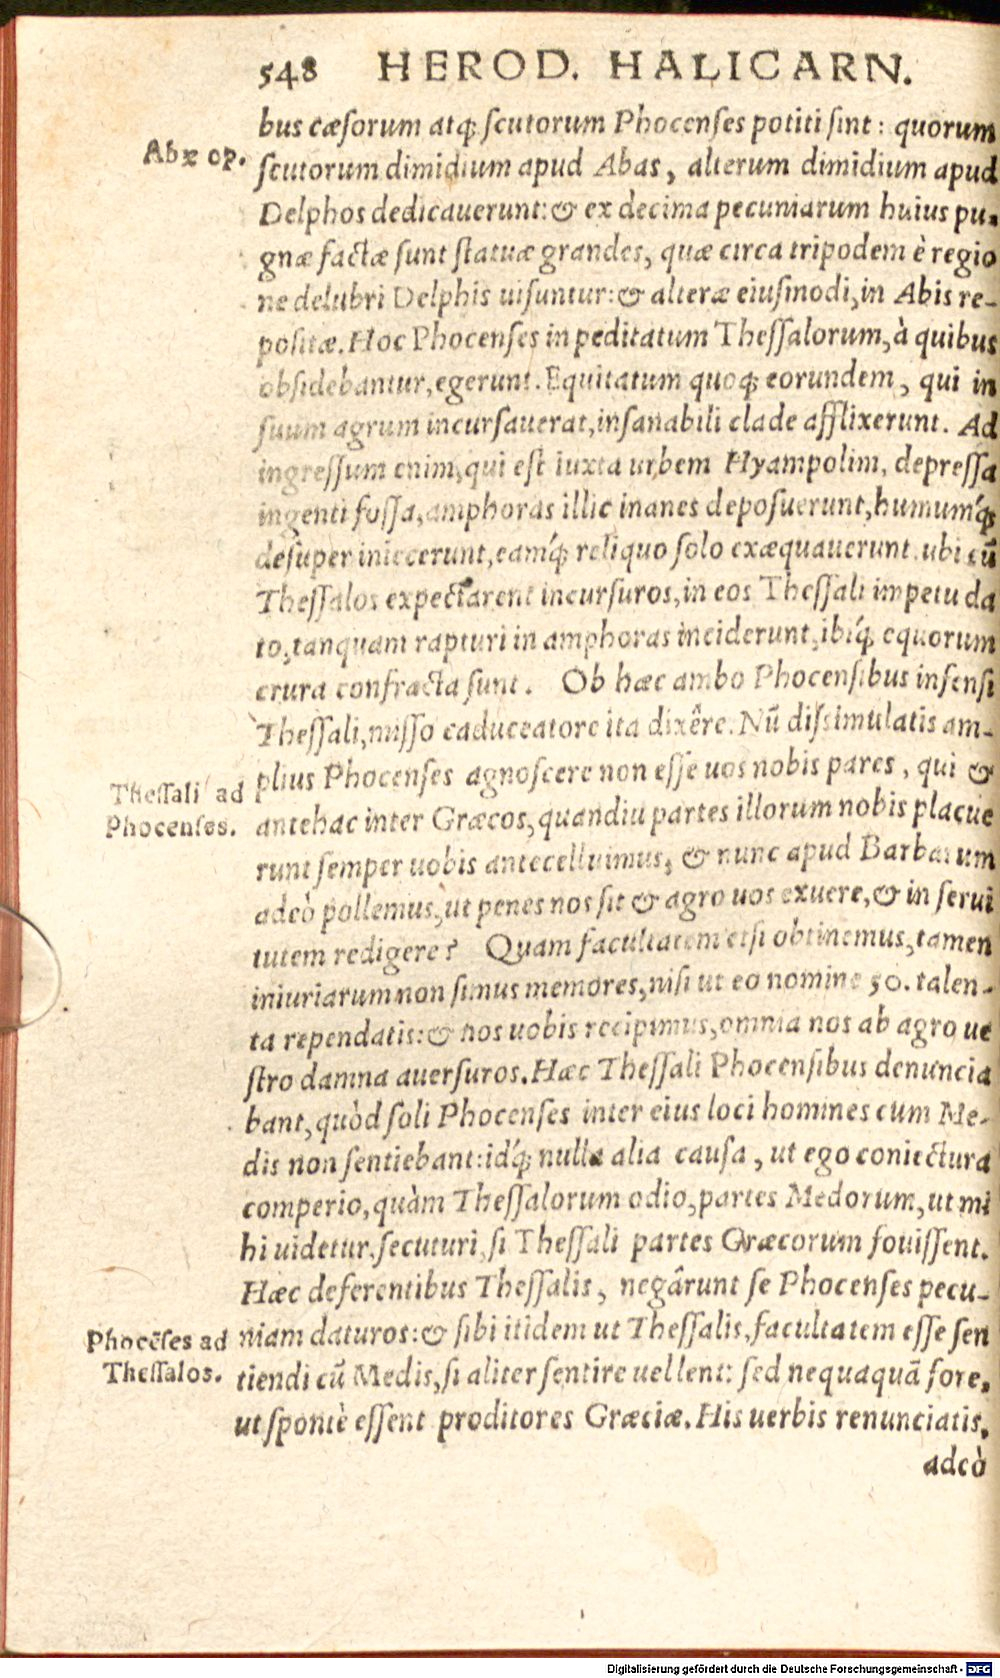 548 HEROD. HALICARN.
bus cæsorum atq; scutorum Phocenses potiti sint: quorum
Abæ op.
scutorum dimidium apud Abas, alterum dimidium apud
Delphos dedicauerunt: & ex decima pecuniarum huius pu-
gnæ factæ sunt statuæ grandes, quæ circa tripodem è regio
ne delubri Delphis uisuntur: & alteræ eiusmodi, in Abis re-
positæ. Hoc Phocenses in peditatum Thessalorum, à quibus
obsidebantur, egerunt. Equitatum quoq; eorundem, qui in
suum agrum incursauerat, insanabili clade afflixerunt. Ad
ingressum enim, qui est iuxta urbem Hyampolim, depressa
ingenti fossa, amphoras illic inanes deposuerunt, humumq́;
desuper iniecerunt, eamq́; reliquo solo exæquauerunt. ubi cũ
Thessalos expectarent incursuros, in eos Thessali impetu da
to, tanquam rapturi in amphoras inciderunt, ibiq́; equorum
crura confracta sunt. Ob hæc ambo Phocensibus infensi
Thessali, misso caduceatore ita dixêre. Nũ dissimulatis am-
plius Phocenses agnoscere non esse uos nobis pares, qui &
Thessali ad
Phocenses.
antehac inter Græcos, quandiu partes illorum nobis placue
runt semper uobis antecelluimus, & nunc apud Barbarum
adeò pollemus, ut penes nos sit & agro uos exuere, & in serui
tutem redigere? Quam facultatem etsi obtinemus, tamen
iniuriarum non simus memores, nisi ut eo nomine 50. talen-
ta rependatis: & nos uobis recipimus, omnia nos ab agro ue
stro damna auersuros. Hæc Thessali Phocensibus denuncia
bant, quòd soli Phocenses inter eius loci homines cum Me-
dis non sentiebant: idq́; nulla alia causa, ut ego coniectura
comperio, quàm Thessalorum odio, partes Medorum, ut mi
hi uidetur, secuturi, si Thessali partes Græcorum fouissent.
Hæc deferentibus Thessalis, negârunt se Phocenses pecu-
Phocẽses ad
Thessalos.
niam daturos: & sibi itidem ut Thessalis, facultatem esse sen
tiendi cũ Medis, si aliter sentire uellent: sed nequaquã fore,
ut spontè essent proditores Græciæ. His uerbis renunciatis,
adeò
Digitalisierung gefördert durch die Deutsche Forschungsgemeinschaft - DFG